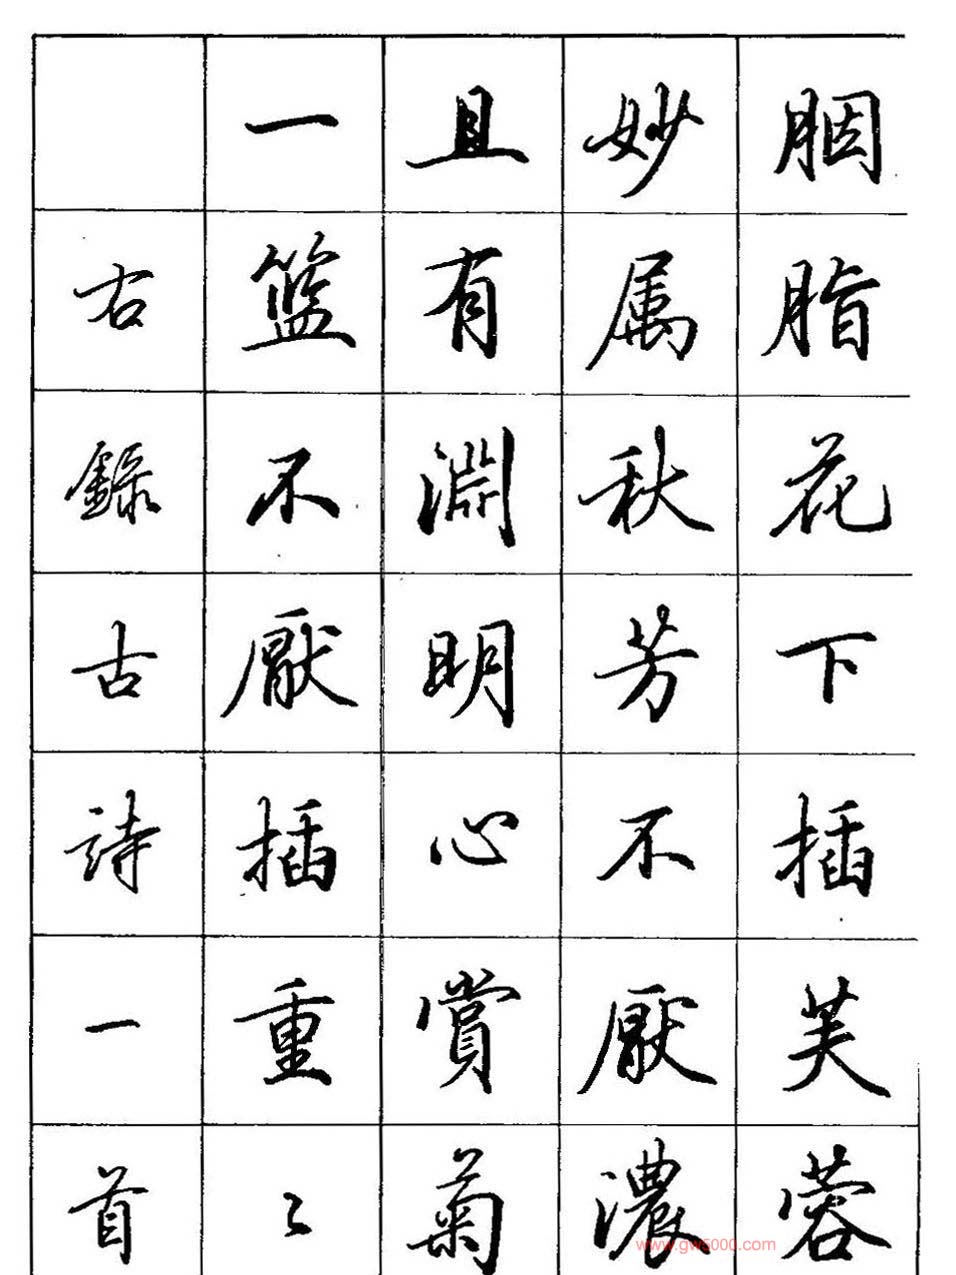 胭脂花下插芙蓉
妙属秋芳不厭濃
且有淵明心賞菊
一籃不厭插重〻
右錄古詩一首
www.gw5000.com